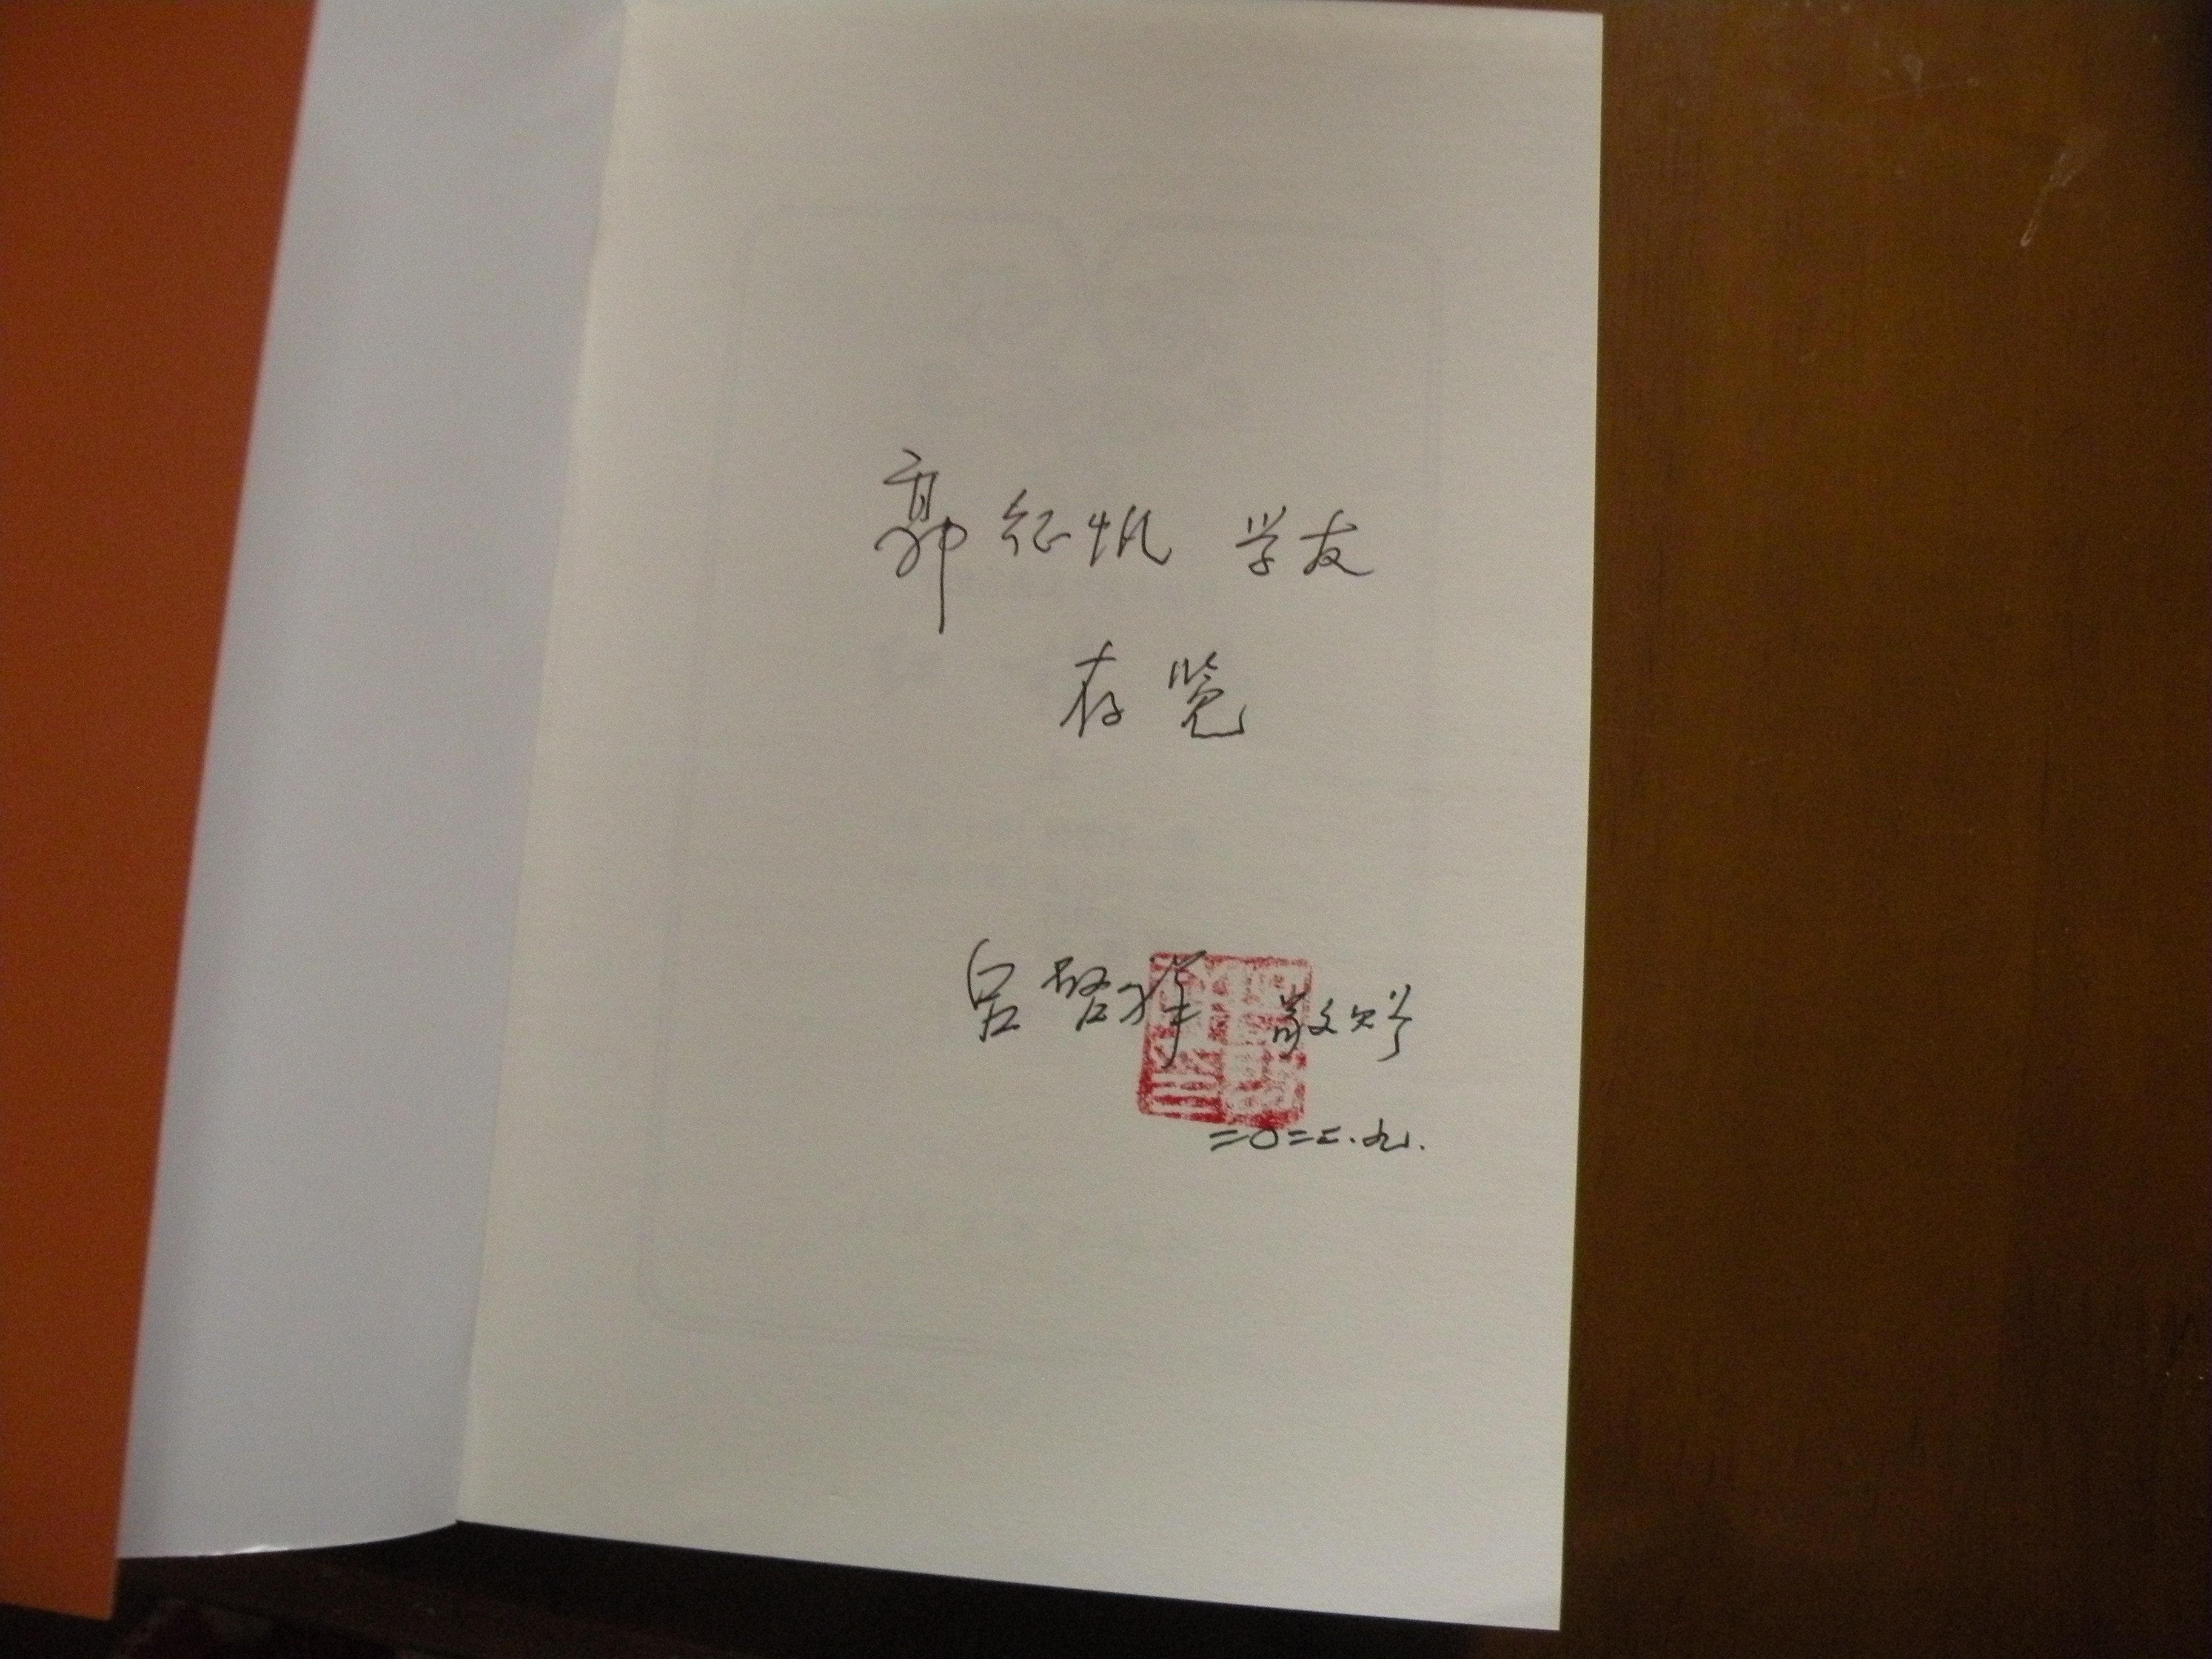 郭征帆 学友
存览
吕启祥 敬赠
二〇二二.九.